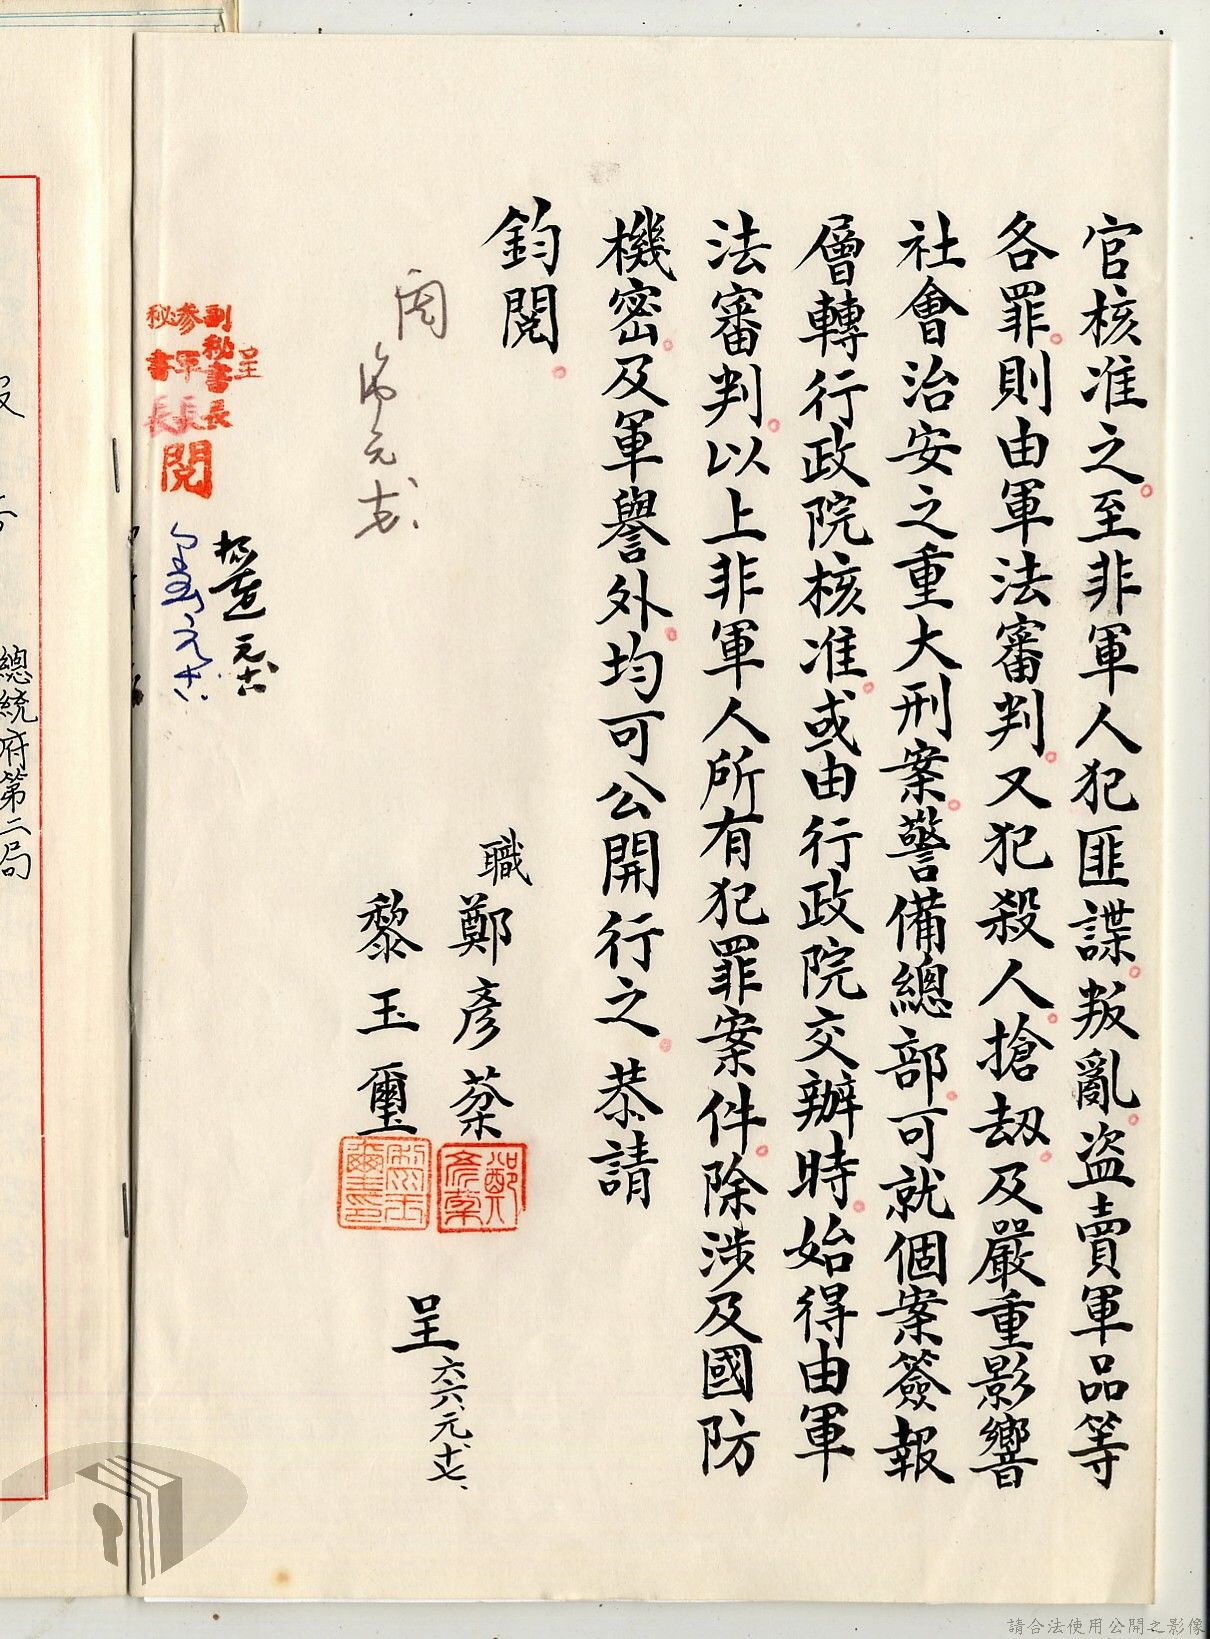 官核准之。至非軍人犯匪諜。叛亂。盜賣軍品等
各罪。則由軍法審判。又犯殺人。搶劫。及嚴重影響
社會治安之重大刑案。警備總部。可就個案簽報
層轉行政院核准。或由行政院交辦時。始得由軍
法審判。以上非軍人所有犯罪案件。除涉及國防
機密。及軍譽外。均可公開行之。恭請
鈞閱。
職鄭彥棻
黎玉璽
呈六六、元、十七、
鄭彥棻
黎玉璽印
閱
呈
副秘書長
參軍長
秘書長
閱
元、十八
總統府第二局
請合法使用公開之影像